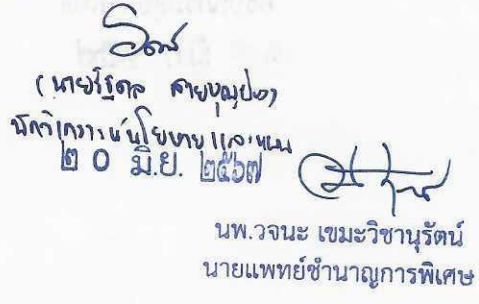 (นายวิรัตน์ สายบุญปอง)
นักวิเคราะห์นโยบายและแผน
๒๐ มิ.ย. ๒๕๖๗
นพ.วจนะ เขมะวิชานุรัตน์
นายแพทย์ชำนาญการพิเศษ